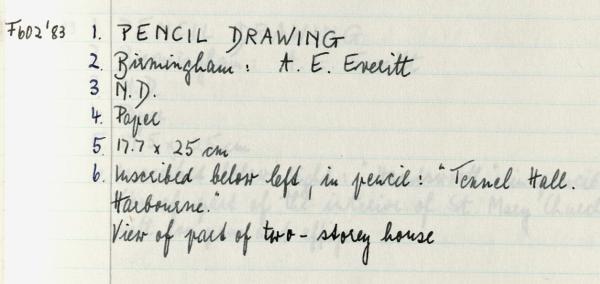 F602'83 1. PENCIL DRAWING
2. Birmingham: A. E. Everitt
3 N.D.
4. Paper
5 17.7 x 25 cm
6. Inscribed below left, in pencil: "Tennel Hall.
Harbourne.
View of part of two-storey house